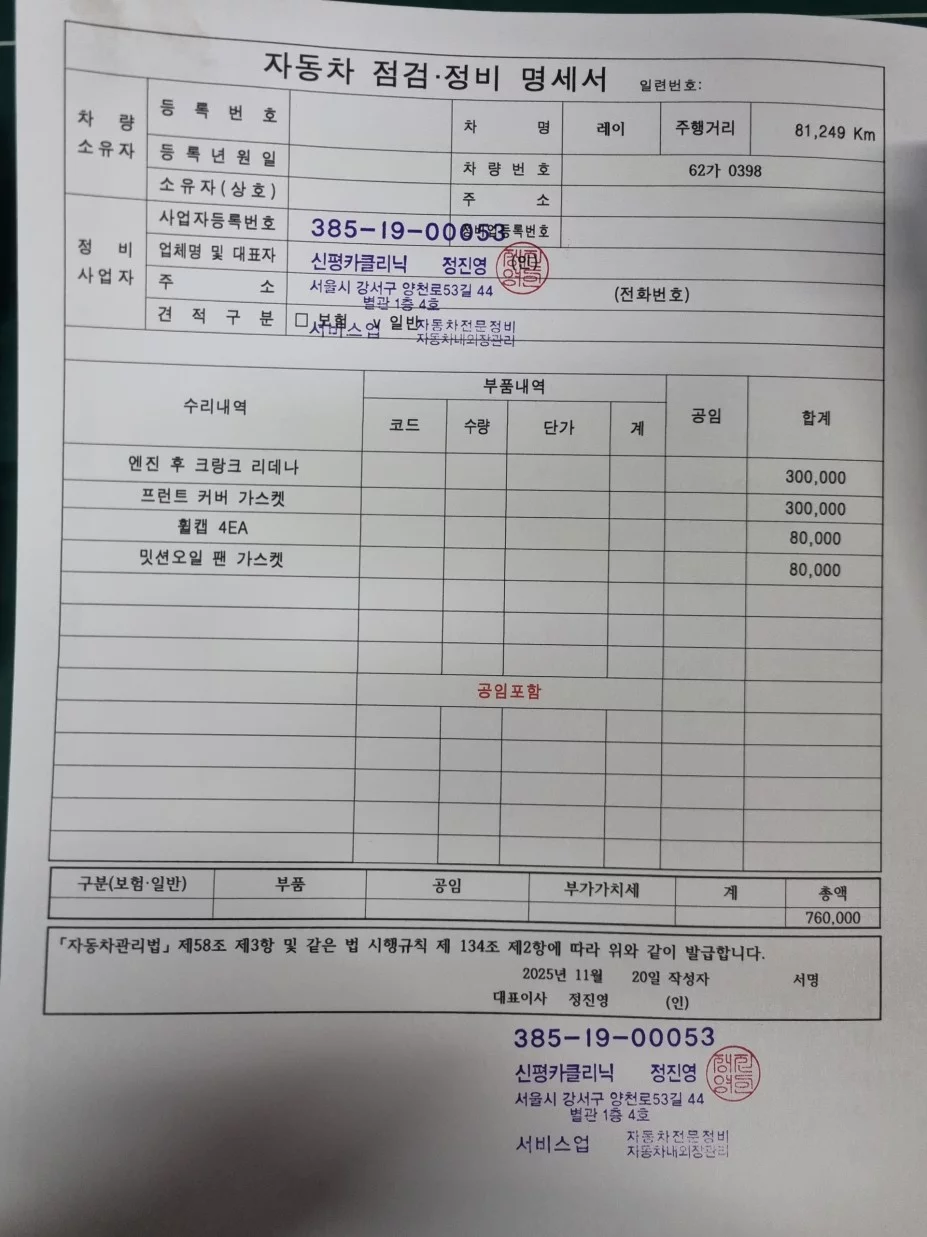 자동차 점검·정비 명세서 일련번호:
차 량 소유자
등 록 번 호 차 명 레이 주행거리 81,249 Km
등 록 년 원 일 차 량 번 호 62가 0398
소유자(상호) 주 소
정 비 사업자
사업자등록번호 385-19-00053 정비업등록번호
업체명 및 대표자 신평카클리닉 정진영 (인)
주 소 서울시 강서구 양천로53길 44 (전화번호)
별관 1층 4호
견 적 구 분 □ 보험 v 일반
서비스업 자동차전문정비
자동차내외장관리
수리내역 부품내역 공임 합계
코드 수량 단가 계
엔진 후 크랑크 리데나 300,000
프런트 커버 가스켓 300,000
휠캡 4EA 80,000
밋션오일 팬 가스켓 80,000
공임포함
구분(보험·일반) 부품 공임 부가가치세 계 총액
760,000
「자동차관리법」제58조 제3항 및 같은 법 시행규칙 제 134조 제2항에 따라 위와 같이 발급합니다.
2025년 11월 20일 작성자 서명
대표이사 정진영 (인)
385-19-00053
신평카클리닉 정진영
서울시 강서구 양천로53길 44
별관 1층 4호
서비스업 자동차전문정비
자동차내외장관리